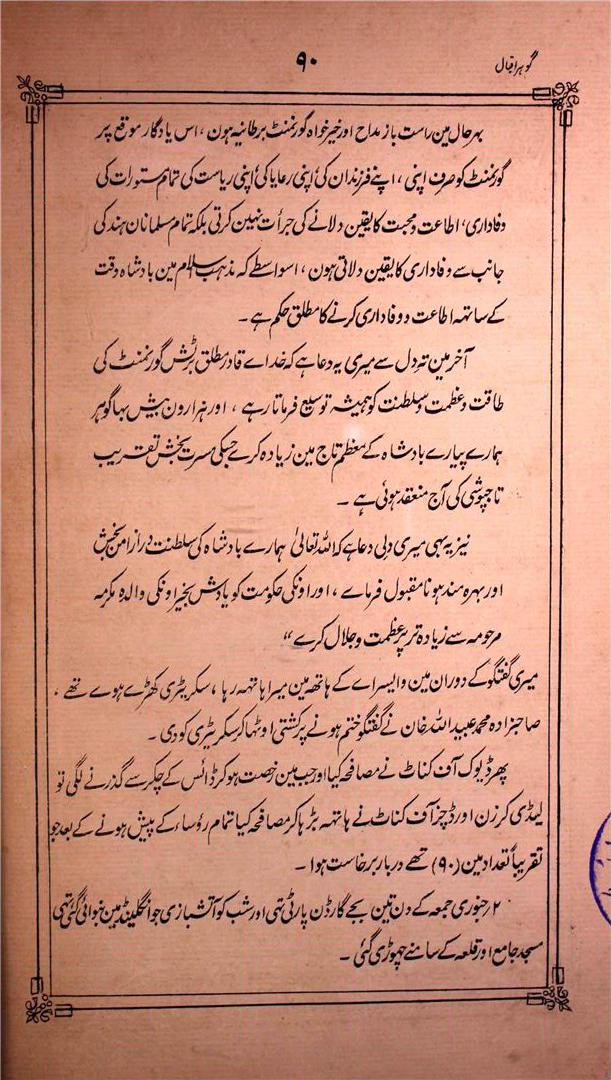 گوہر اقبال
۹۰
بہر حال مین راست باز مداح اور خیر خواہ گورنمنٹ برطانیہ ہون ، اس یادگار موقع پر
گورنمنٹ کو صرف اپنی ، اپنے فرزندان کی/اپنی رعایا کی/اپنی ریاست کی تمام مستورات کی
وفاداری، اطاعت و محبت کا یقین دلانے کی جرأت نہین کرتی بلکہ تمام مسلمانان ہند کی
جانب سے وفاداری کا یقین دلاتی ہون ، اسواسطے کہ مذہب اسلام مین بادشاہ وقت
کے ساتھہ اطاعت و وفاداری کرنے کا مطلق حکم ہے ۔
آخر مین تہِ دل سے میری یہ دعا ہے کہ خداے قادر مطلق برٹش گورنمنٹ کی
طاقت و عظمت و سلطنت کو ہمیشہ توسیع فرماتا رہے ، اور ہزارون بیش بہا گوہر
ہمارے پیارے بادشاہ کے معظم تاج مین زیادہ کرے جسکی مسرت بخش تقریب
تاجپوشی کی آج منعقد ہوئی ہے ۔
نیز یہ بہی میری دلی دعا ہے کہ اللہ تعالیٰ ہمارے بادشاہ کی سلطنت دراز امن بخش
اور بہرہ مند ہونا مقبول فرماے ، اور اونکی حکومت کو یادش بخیر اونکی والدہ مکرمہ
مرحومہ سے زیادہ تر پر عظمت و جلال کرے “
میری گفتگو کے دوران مین وایسراے کے ہاتھ مین میرا ہاتھہ رہا ، سکریٹری کھڑے ہوے تھے ،
صاحبزادہ محمد عبید اللہ خان نے گفتگو ختم ہونے پر کشتی اوٹھا کر سکریٹری کو دی ۔
پھر ڈیوک آف کناٹ نے مصافحہ کیا اور جب مین رخصت ہو کر ڈائس کے چکر سے گذرنے لگی تو
لیڈی کرزن اور ڈچز آف کناٹ نے ہاتھہ بڑہا کر مصافحہ کیا تمام رؤساء کے پیش ہونے کے بعد جو
تقریباً تعداد مین (۹۰) تھے دربار برخاست ہوا ۔
۲ جنوری جمعہ کے دن تین بجے گارڈن پارٹی تہی اور شب کو آتشبازی جو انگلینڈ مین بنوائی گئی تہی
مسجد جامع اور قلعہ کے سامنے چہوڑی گئی ۔